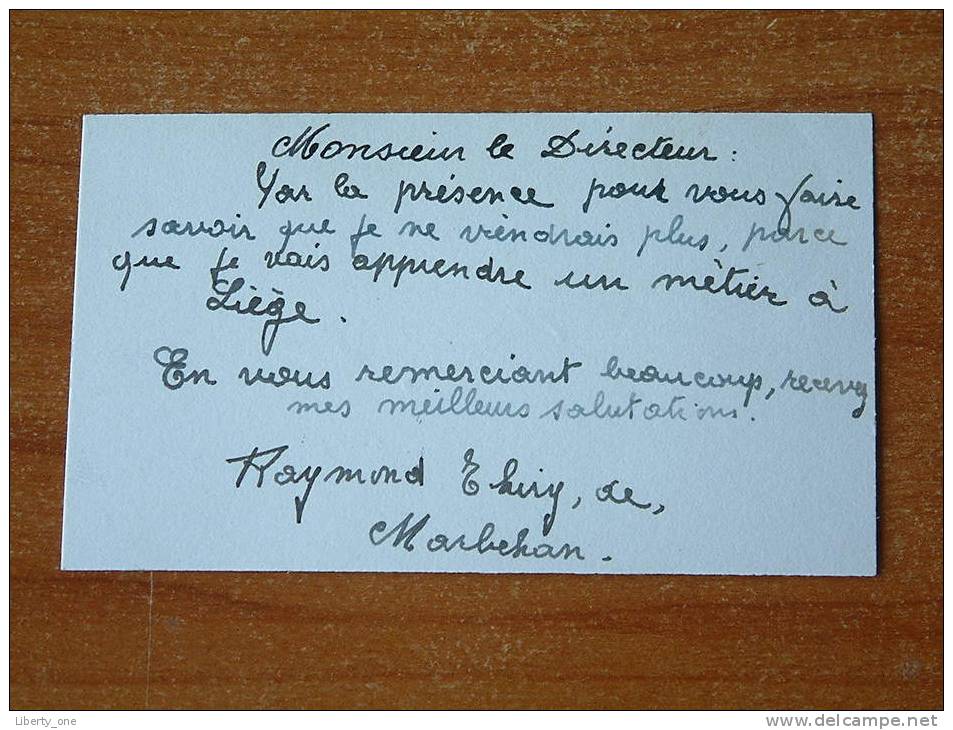 Monsieur le Directeur :
Par la présence pour vous faire
savoir que je ne viendrais plus, parce
que je vais apprendre un métier à
Liège.
En vous remerciant beaucoup, recevez
mes meilleurs salutations.
Raymond Thiry, de,
Marbehan.
Liberty_one
www.delcampe.net